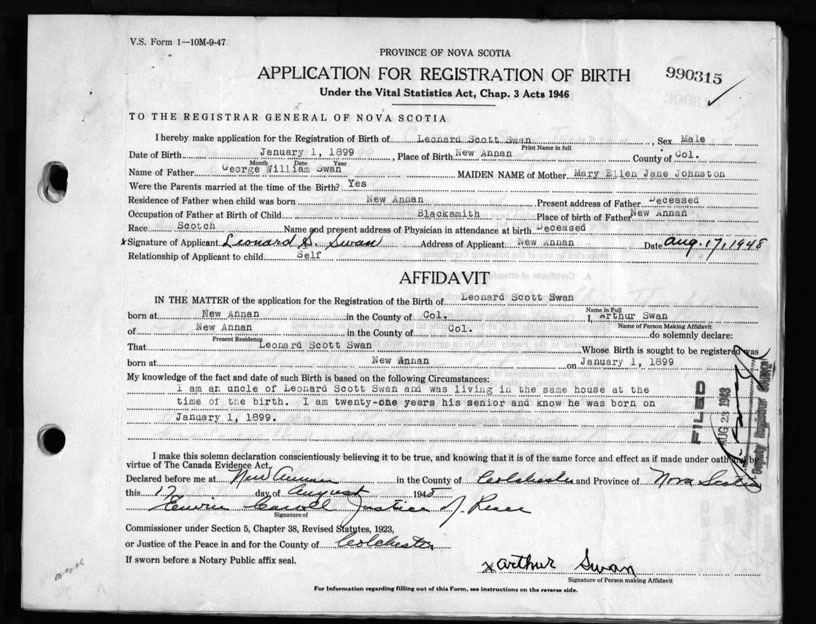 V.S. Form 1—10M-9-47
PROVINCE OF NOVA SCOTIA
APPLICATION FOR REGISTRATION OF BIRTH
990315
Under the Vital Statistics Act, Chap. 3 Acts 1946
TO THE REGISTRAR GENERAL OF NOVA SCOTIA
I hereby make application for the Registration of Birth of Leonard Scott Swan, Sex Male
Print Name in full
Date of Birth January 1, 1899, Place of Birth New Annan County of Col.
Month Date Year
Name of Father George William Swan MAIDEN NAME of Mother Mary Ellen Jane Johnston
Were the Parents married at the time of the Birth? Yes
Residence of Father when child was born New Annan Present address of Father Deceased
Occupation of Father at Birth of Child Blacksmith Place of birth of Father New Annan
Race Scotch Name and present address of Physician in attendance at birth Deceased
x Signature of Applicant Leonard S. Swan Address of Applicant New Annan Date Aug. 17, 1948
Relationship of Applicant to child Self
AFFIDAVIT
IN THE MATTER of the application for the Registration of the Birth of Leonard Scott Swan
Name in Full
born at New Annan in the County of Col. I, Arthur Swan
Name of Person Making Affidavit
of New Annan in the County of Col. do solemnly declare:
Present Residence
That Leonard Scott Swan Whose Birth is sought to be registered was
born at New Annan on January 1, 1899
My knowledge of the fact and date of such Birth is based on the following Circumstances:
I am an uncle of Leonard Scott Swan and was living in the same house at the
time of the birth. I am twenty-one years his senior and know he was born on
January 1, 1899.
FILED
AUG 23 1948
Deputy Registrar General
I make this solemn declaration conscientiously believing it to be true, and knowing that it is of the same force and effect as if made under oath and by
virtue of The Canada Evidence Act.
Declared before me at New Annan in the County of Colchester and Province of Nova Scotia
this 17 day of August 1948
Edwin Justice of Peace
Signature of
Commissioner under Section 5, Chapter 38, Revised Statutes, 1923,
or Justice of the Peace in and for the County of Colchester
If sworn before a Notary Public affix seal.
x Arthur Swan
Signature of Person making Affidavit
For Information regarding filling out of this Form, see instructions on the reverse side.